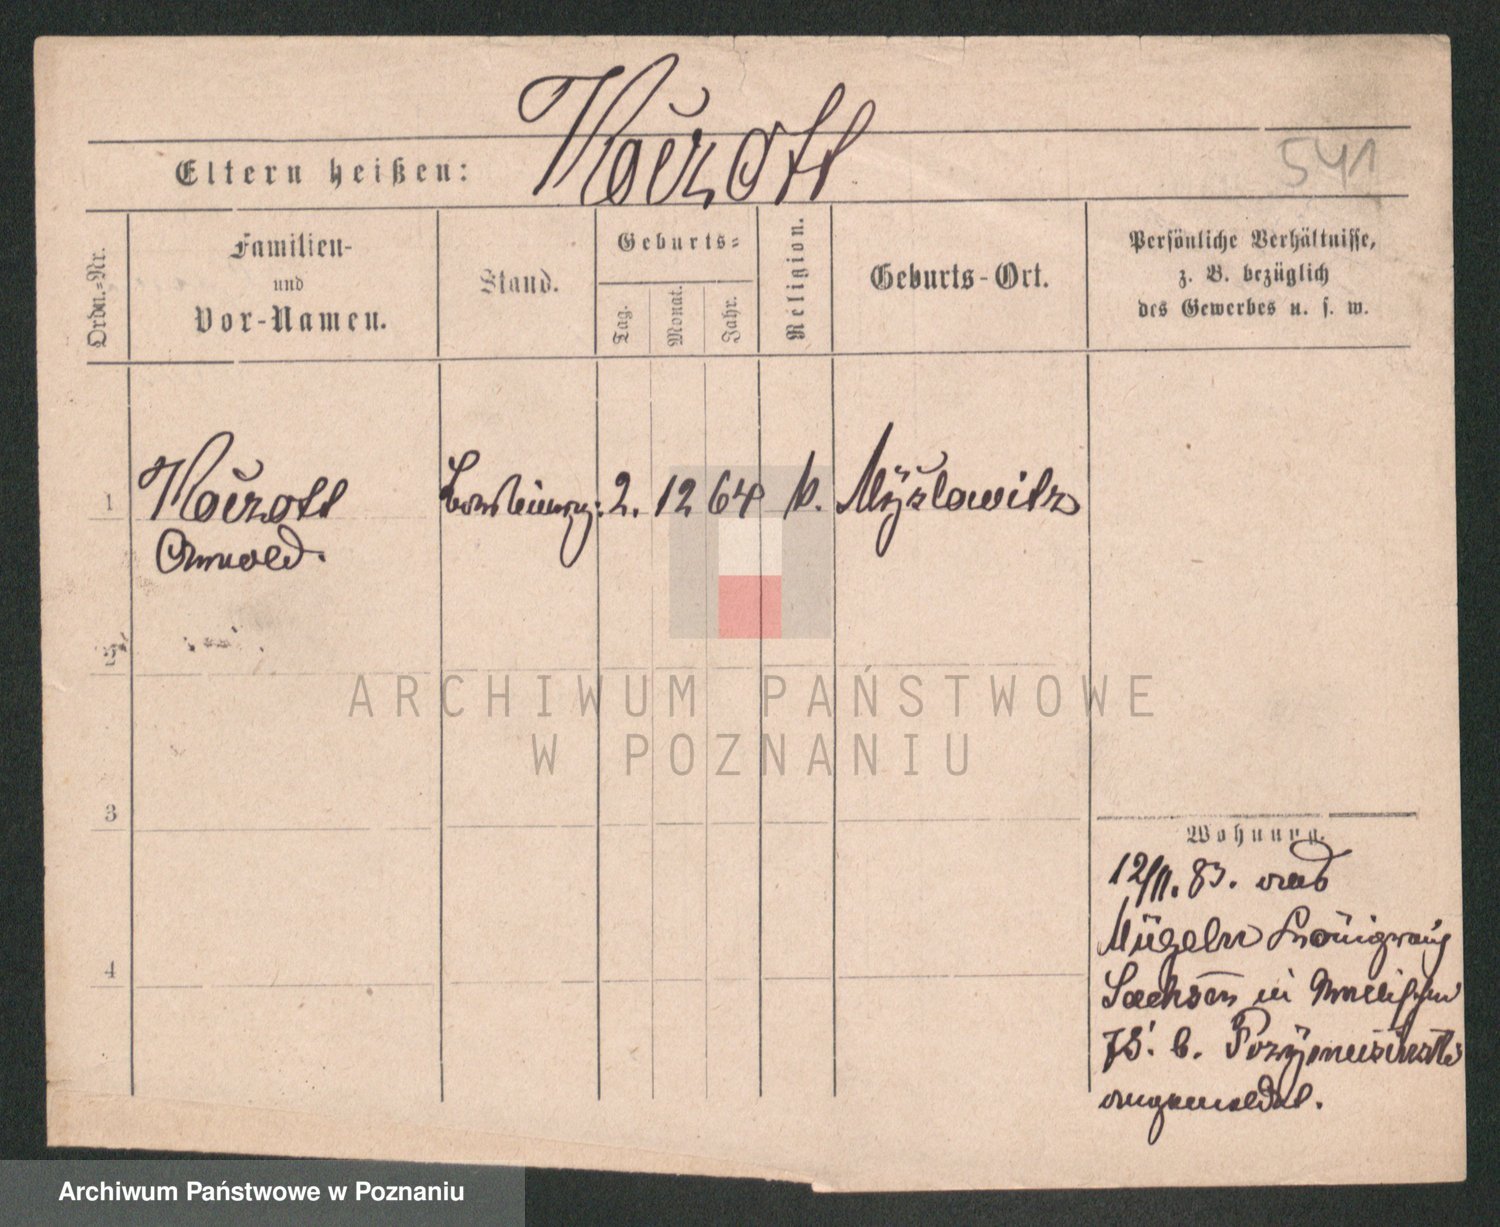 541
Eltern heißen:
Ordn.=Nr.
Familien-
und
Vor-Namen.
Stand.
Geburts=
Tag.
Monat.
Jahr.
Religion.
Geburts-Ort.
Persönliche Verhältnisse,
z. B. bezüglich
des Gewerbes u. s. w.
1
2. 12 64 k. Myslowitz
2
3
4
Wohnung.
12/11. 83. aus
Mügeln Königreich
Sachsen in
75. b.
angemeldet.
ARCHIWUM PAŃSTWOWE
W POZNANIU
Archiwum Państwowe w Poznaniu